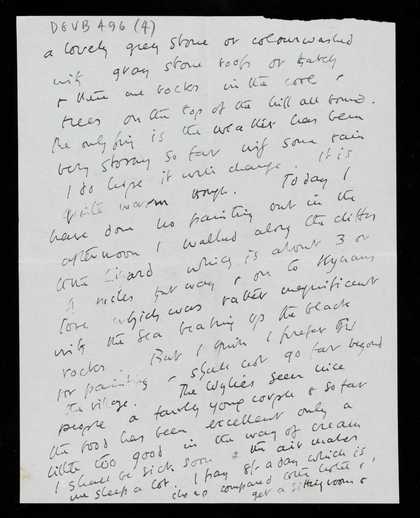 DEVB 496 (4)
a lovely grey stone or colourwashed
with gray stone roofs or thatch
& there are rocks in the cove &
trees on the top of the hill all round.
The only thing is the weather has been
very stormy so far with some rain
I do hope it will change. It is
quite warm though. Today I
have done no painting out in the
afternoon I walked along the cliffs
to the Lizard which is about 3 or
4 miles away & on to Kynans
Cove which was rather magnificent
with the sea beating up the black
rocks. But I think I prefer this
for painting & shall not go far beyond
the village. The Wylies seem nice
people a fairly young couple & so far
the food has been excellent only a
little too good in the way of cream
I shall be sick soon & the air makes
me sleep a lot. I pay 8/- a day which is
cheap compared with the hotel &
get a sitting room &